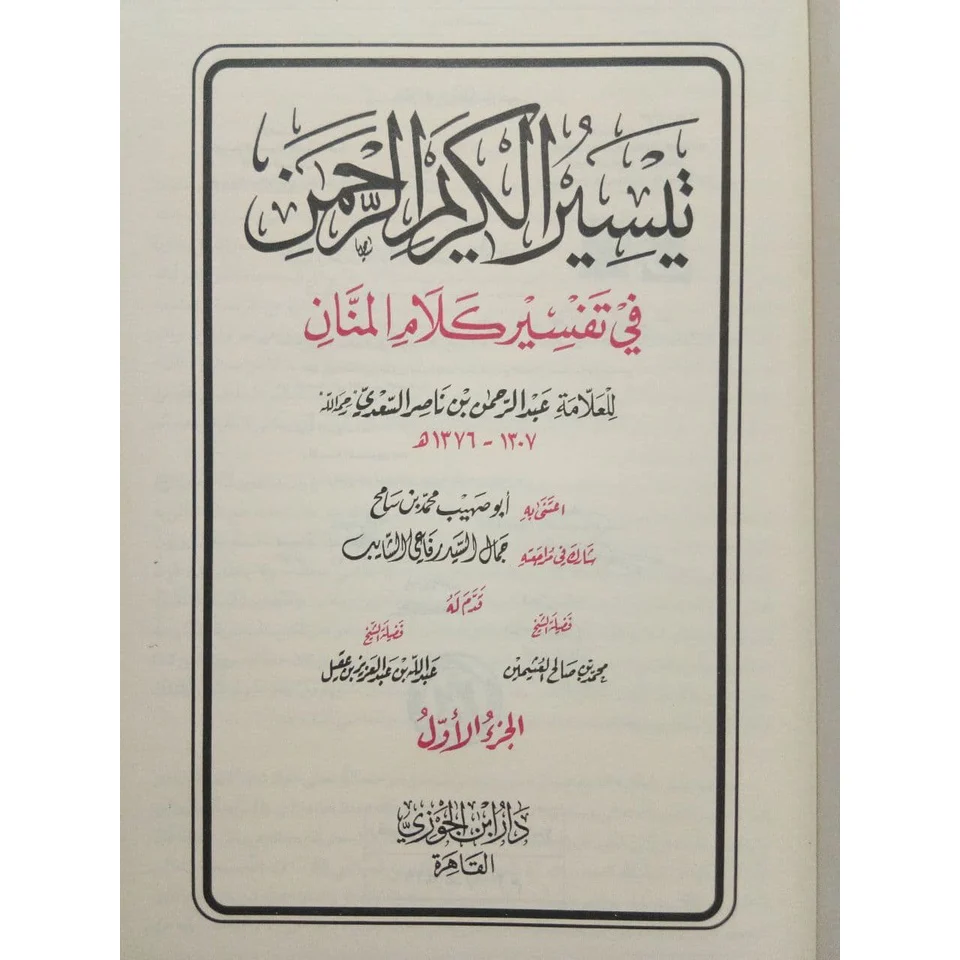 تَيْسِيْرُ الكَرِيْمِ الرَّحْمَنِ
فِيْ تَفْسِيْرِ كَلَامِ المَنَّانِ
لِلعَلَّامَةِ عَبْدِ الرَّحمٰن بْن نَاصِرِ السَّعْدِيّ رحمه الله
١٣٠٧ - ١٣٧٦هـ
اعتَنَى بِهِ أبو صهَيْب محمَّد بْن سَامح
شارك في مُراجعته جمَال السَّيِّد رفَاعي الشَّايِب
قَدَّمَ لَهُ
فَضيلَة الشَّيْخ فَضيلَة الشَّيْخ
محمد بن صالح العُثيمين عَبدالله بْن عَبدالعزيز بن عقيل
الجُزءُ الأوَّلُ
دَارُ ابْنِ الجَوْزِيّ
القَاهِرَة